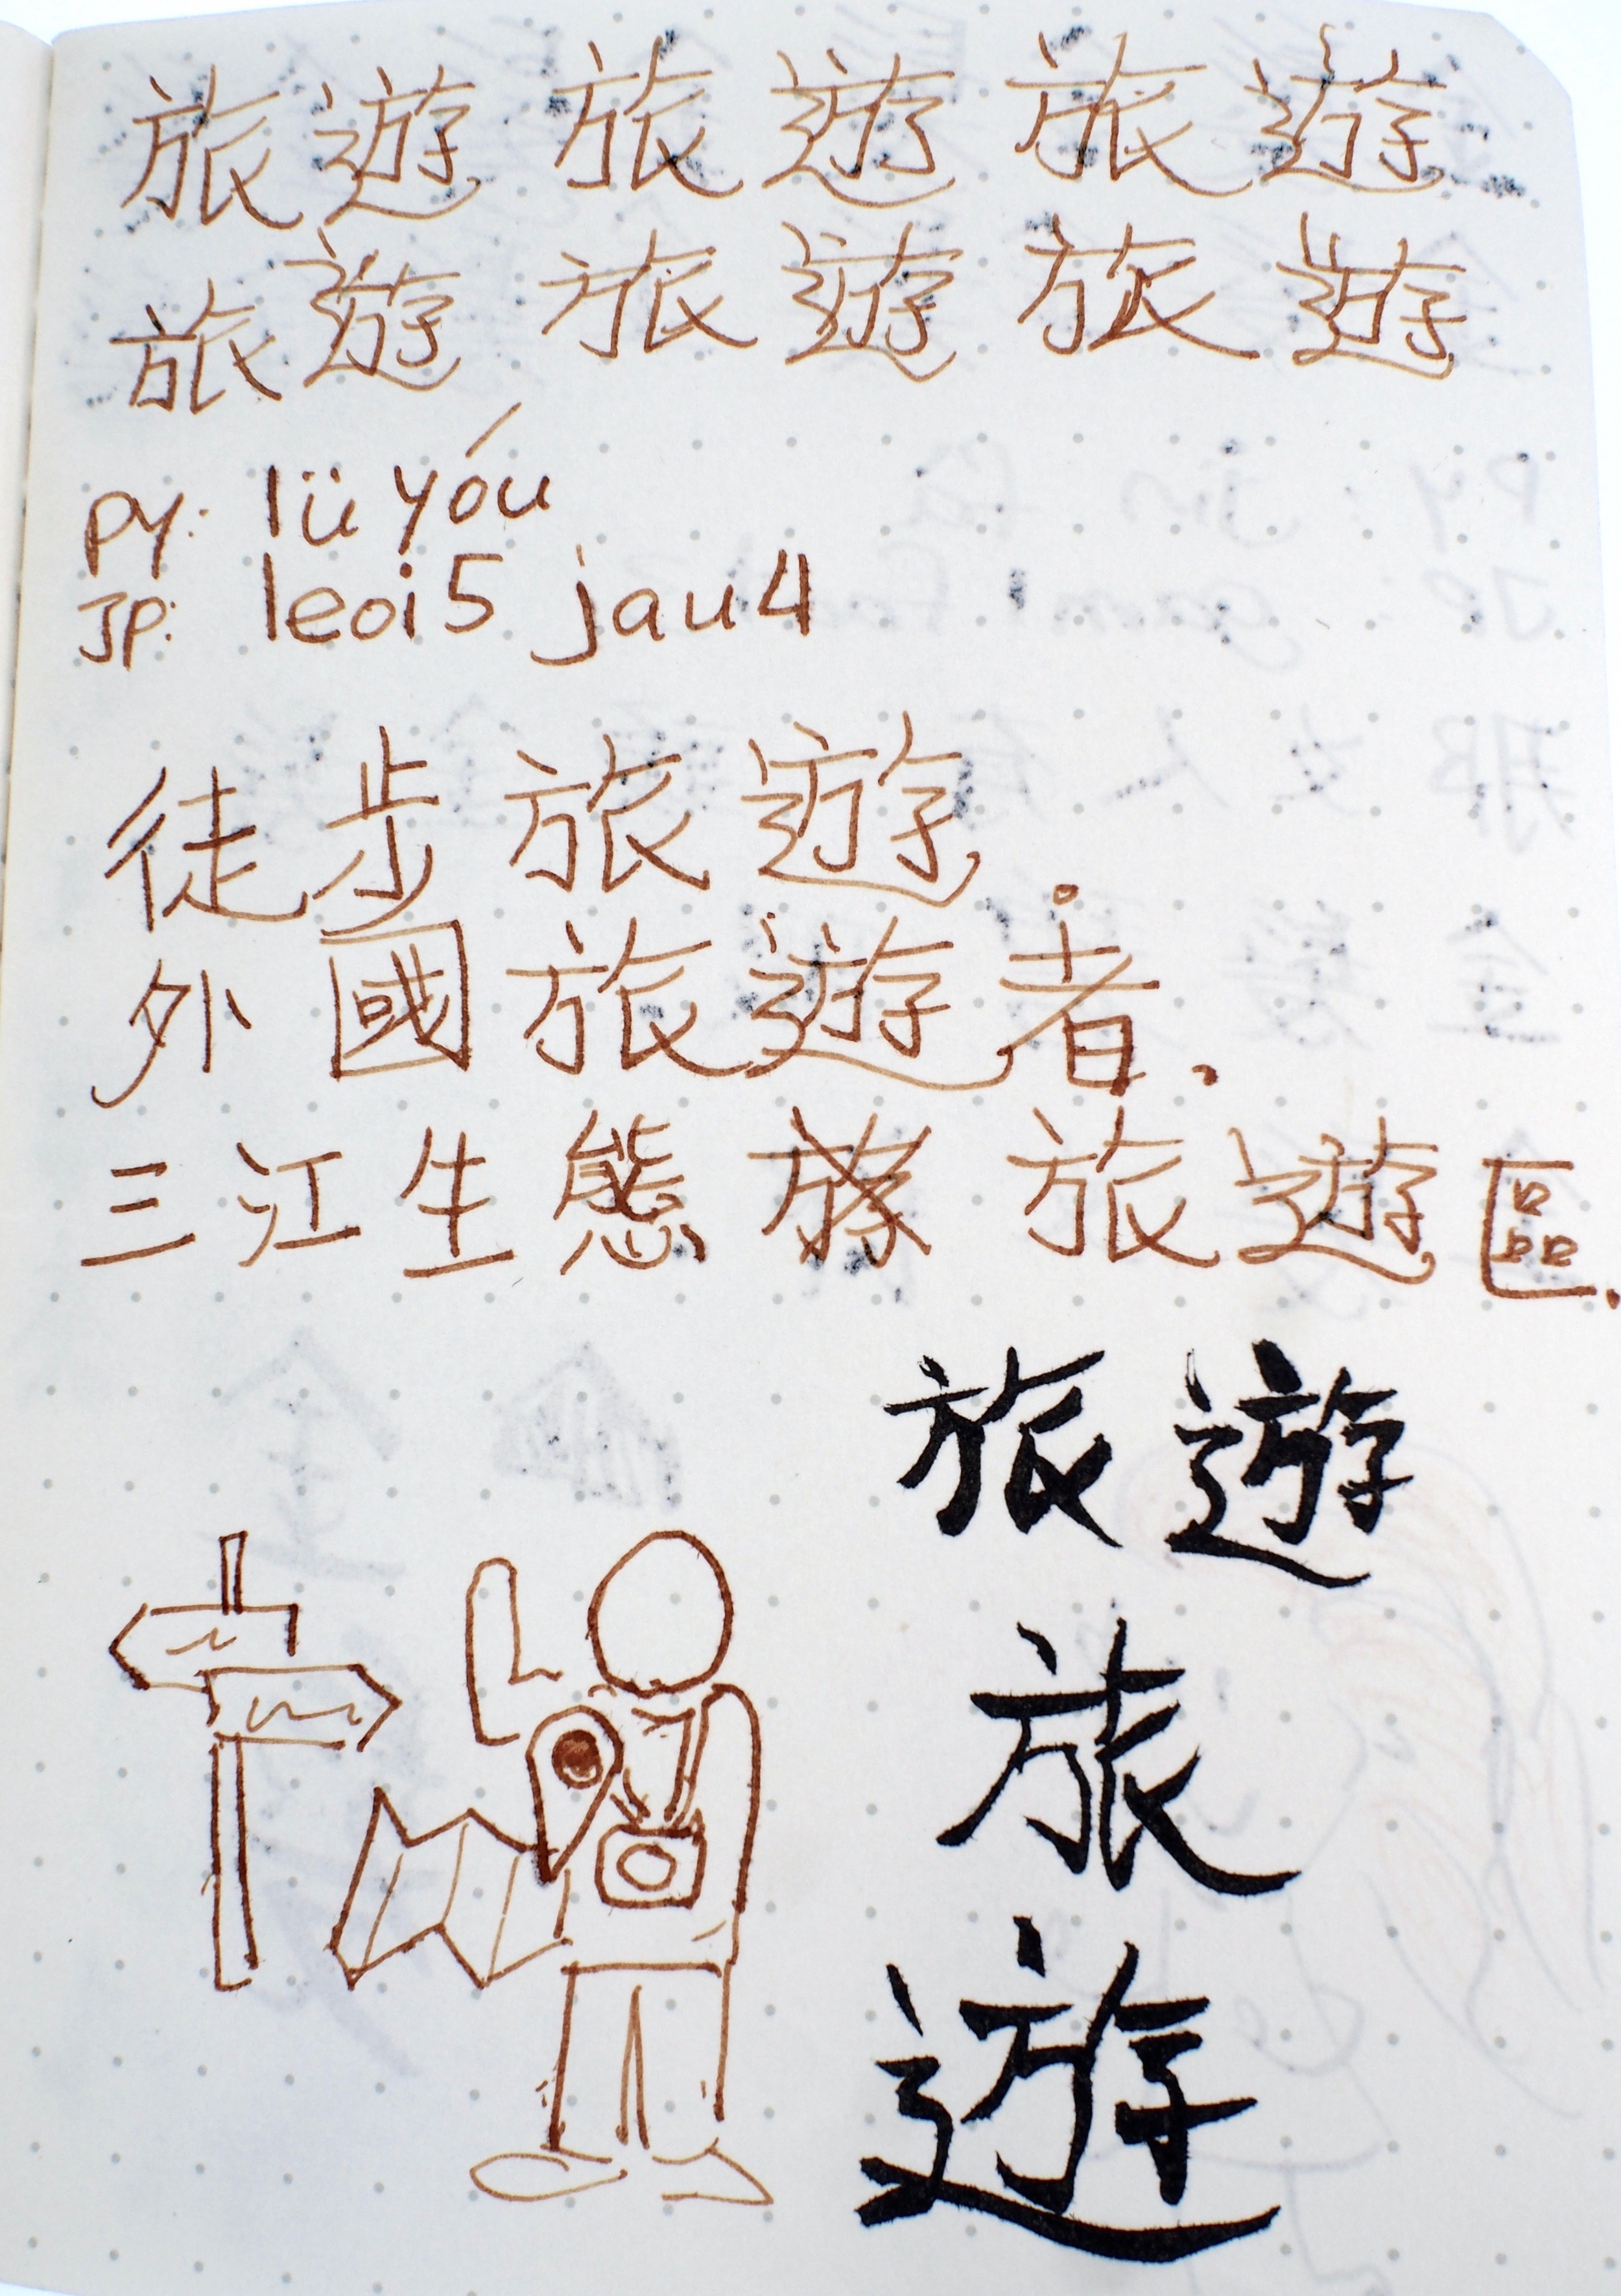 旅遊 旅遊 旅遊
旅遊 旅遊 旅遊
py: lü yóu
JP: leoi5 jau4
徒步旅遊。
外國旅遊者.
三江生態旅遊區.
旅遊
旅
遊